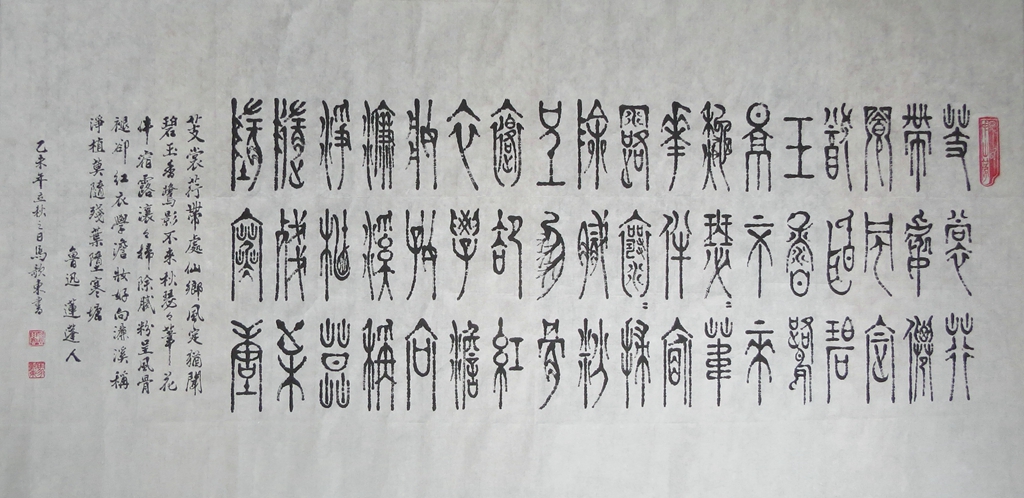 芰裳荇
帶處僊
鄉風定
猶聞碧
玉香鷺
影不來
秋瑟=葦
華伴宿
露瀼=掃
除膩粉
呈風骨
褪卻紅
衣學澹
妝好向
濂溪稱
淨植莫
隨殘葉
墮寒塘
芰裳荇帶處仙鄉風定猶聞
碧玉香鷺影不来秋瑟々葦花
伴宿露瀼々掃除膩粉呈風骨
褪卻紅衣學澹妝好向濂溪稱
淨植莫隨殘葉墮寒塘
魯迅 蓮蓬人
乙未年立秋之日馬東書